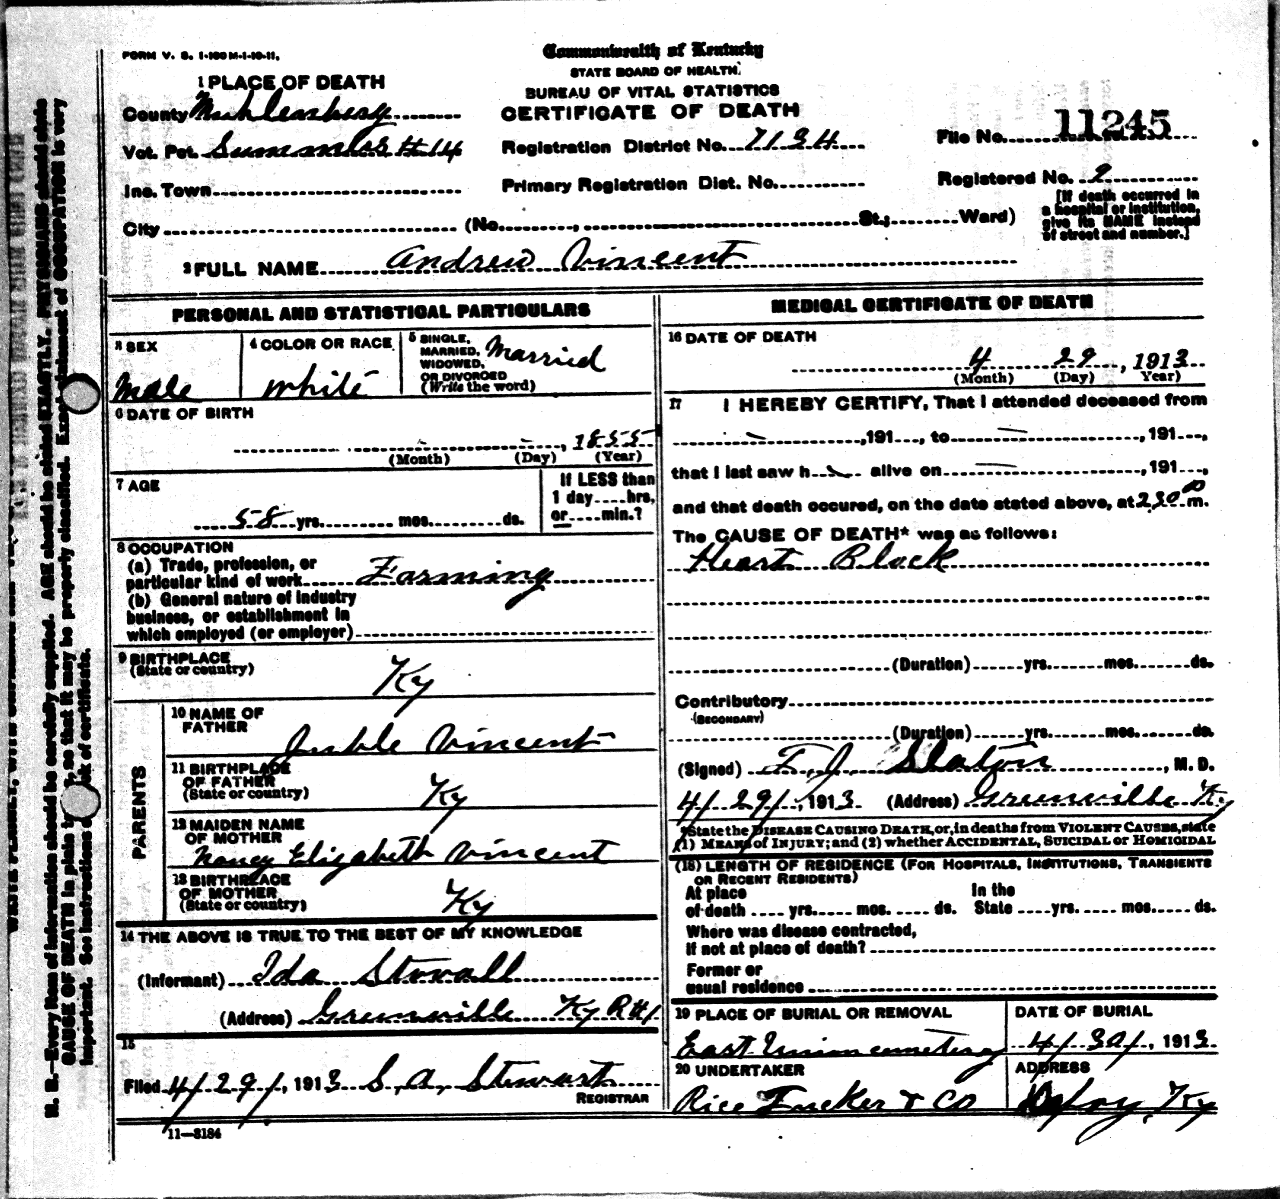 FORM V. S. 1-100 M-1-10-11.
Commonwealth of Kentucky
STATE BOARD OF HEALTH.
BUREAU OF VITAL STATISTICS
CERTIFICATE OF DEATH
1 PLACE OF DEATH
County Muhlenberg
Vot. Pct. Summers #14
Inc. Town
City (No. , St.; Ward)
Registration District No. 7134
Primary Registration Dist. No.
File No. 11245
Registered No. 2
[If death occurred in
a hospital or institution,
give its NAME instead
of street and number.]
2 FULL NAME Andrew Vincent
PERSONAL AND STATISTICAL PARTICULARS
3 SEX
Male
4 COLOR OR RACE
White
5 SINGLE,
MARRIED,
WIDOWED,
OR DIVORCED
(Write the word)
Married
6 DATE OF BIRTH
, 1855
(Month) (Day) (Year)
7 AGE
58 yrs. mos. ds.
If LESS than
1 day hrs,
or min.?
8 OCCUPATION
(a) Trade, profession, or
particular kind of work Farming
(b) General nature of industry
business, or establishment in
which employed (or employer)
9 BIRTHPLACE
(State or country)
Ky
PARENTS
10 NAME OF
FATHER
Vincent
11 BIRTHPLACE
OF FATHER
(State or country)
Ky
12 MAIDEN NAME
OF MOTHER
Nancy Elizabeth Vincent
13 BIRTHPLACE
OF MOTHER
(State or country)
Ky
14 THE ABOVE IS TRUE TO THE BEST OF MY KNOWLEDGE
(Informant) Ida Stovall
(Address) Greenville Ky R#1
15
Filed 4/29/, 1913 S, A, Stewart
REGISTRAR
11-3184
MEDICAL CERTIFICATE OF DEATH
16 DATE OF DEATH
4 29, 1913
(Month) (Day) Year)
17 I HEREBY CERTIFY, That I attended deceased from
,191 , to ,191 ,
that I last saw h alive on , 191 ,
and that death occured, on the date stated above, at 230 P m.
The CAUSE OF DEATH* was as follows:
Heart Block
(Duration) yrs. mos. ds.
Contributory
(SECONDARY)
(Duration) yrs. mos. ds.
(Signed) T. J Slaton , M. D.
4/29/, 1913 (Address) Greenville Ky
*State the DISEASE CAUSING DEATH, or, in deaths from VIOLENT CAUSES, state
(1) MEANS of INJURY; and (2) whether ACCIDENTAL, SUICIDAL or HOMICIDAL
(18) LENGTH OF RESIDENCE (FOR HOSPITALS, INSTITUTIONS, TRANSIENTS
OR RECENT RESIDENTS)
At place In the
of death yrs. mos. ds. State yrs. mos. ds.
Where was disease contracted,
if not at place of death?
Former or
usual residence
19 PLACE OF BURIAL OR REMOVAL
East Union cemetery
DATE OF BURIAL
4/30/, 1913
20 UNDERTAKER
Rice Tucker & Co
ADDRESS
Depoy, Ky
N. B.—Every item of information should be carefully supplied. AGE should be stated EXACTLY. PHYSICIANS should state
CAUSE OF DEATH in plain , so that it may be properly classified. Exact statement of OCCUPATION is very
important. See instructions on back of certificate.